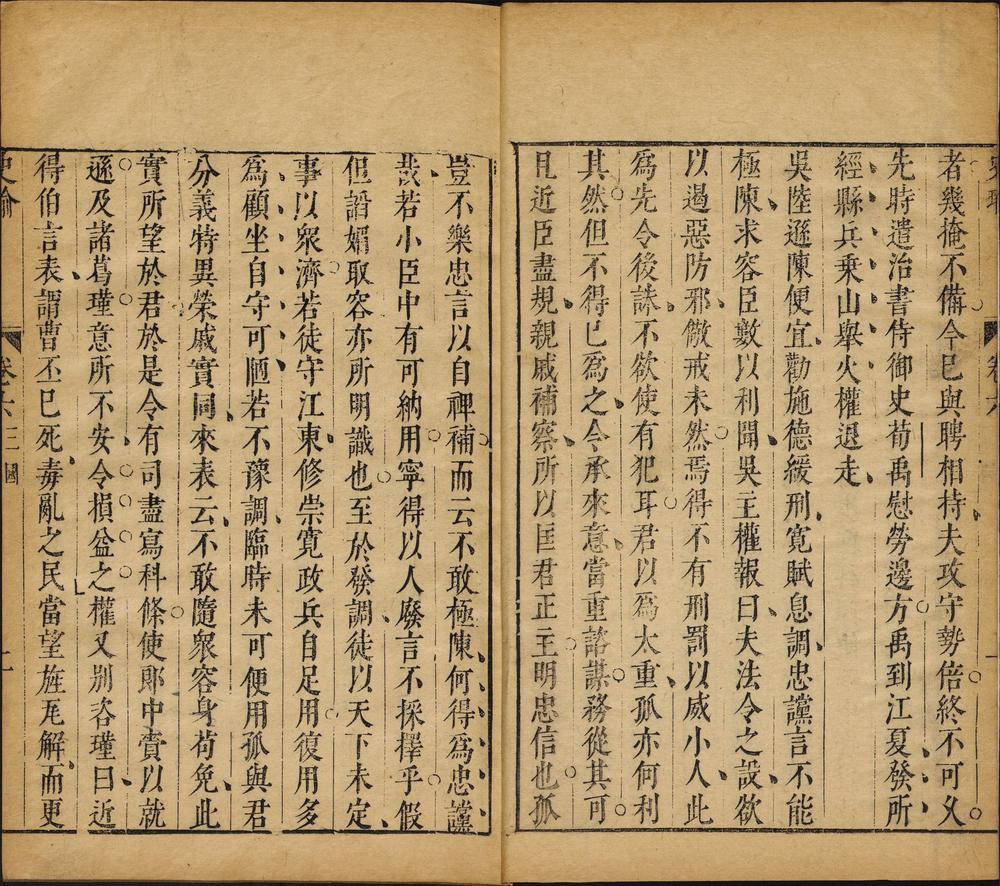 者幾掩不備今已與聘相持夫攻守勢倍終不可久
先時遣治書侍御史荀禹慰勞邊方禹到江夏發所
經縣兵乗山舉火權退走
吳陸遜陳便宜勸施德緩刑寛賦息調忠讜言不能
極陳求容臣數以利聞吳主權報曰夫法令之設欲
以遏惡防邪儆戒未然焉得不有刑罰以威小人此
為先令後誅不欲使有犯耳君以為太重孤亦何利
其然但不得已為之令承來意當重諮謀務從其可
且近臣盡規親戚補察所以匡君正主明忠信也孤
豈不樂忠言以自裨補而云不敢極陳何得為忠讜
哉若小臣中有可納用寧得以人廢言不採擇乎假
但諂媚取容亦所明識也至於發調徒以天下未定
事以衆濟若徒守江東修崇寛政兵自足用復用多
為顧坐自守可陋若不豫調臨時未可便用孤與君
分義特異榮戚實同來表云不敢隨衆容身苟免此
實所望於君於是令有司盡寫科條使郎中賫以就
遜及諸葛瑾意所不安令損益之權又别咨瑾曰近
得伯言表謂曹丕已死毒亂之民當望旌瓦解而更
卷之六 三國